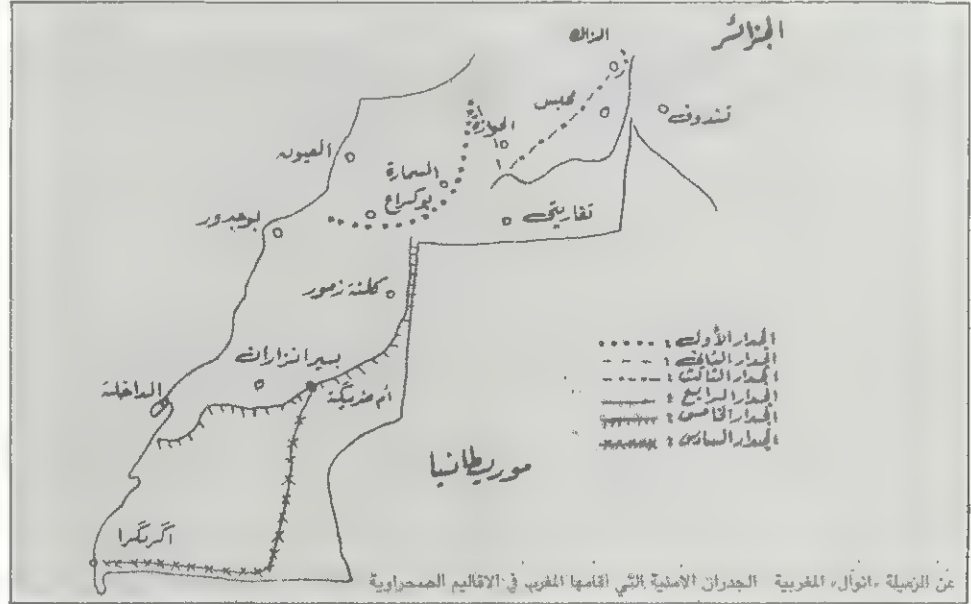 الجزائر
الزاك
محبس
تندوف
الحوازة
العيون
السمارة
بوكراع
بوجدور
تفاريتي
كلتة زمور
بيرانزاران
الداخلة
أم دريكة
موريطانيا
اكَريكَرا
الجدار الأول :
الجدار الثاني :
الجدار الثالث :
الجدار الرابع :
الجدار الخامس :
الجدار السادس :
عن الزميلة «انوال» المغربية الجدران الامنية التي اقامها المغرب في الاقاليم الصحراوية